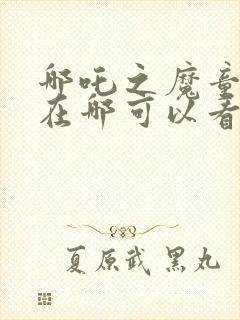 哪吒之魔童
在哪可以看
夏原武 黑丸